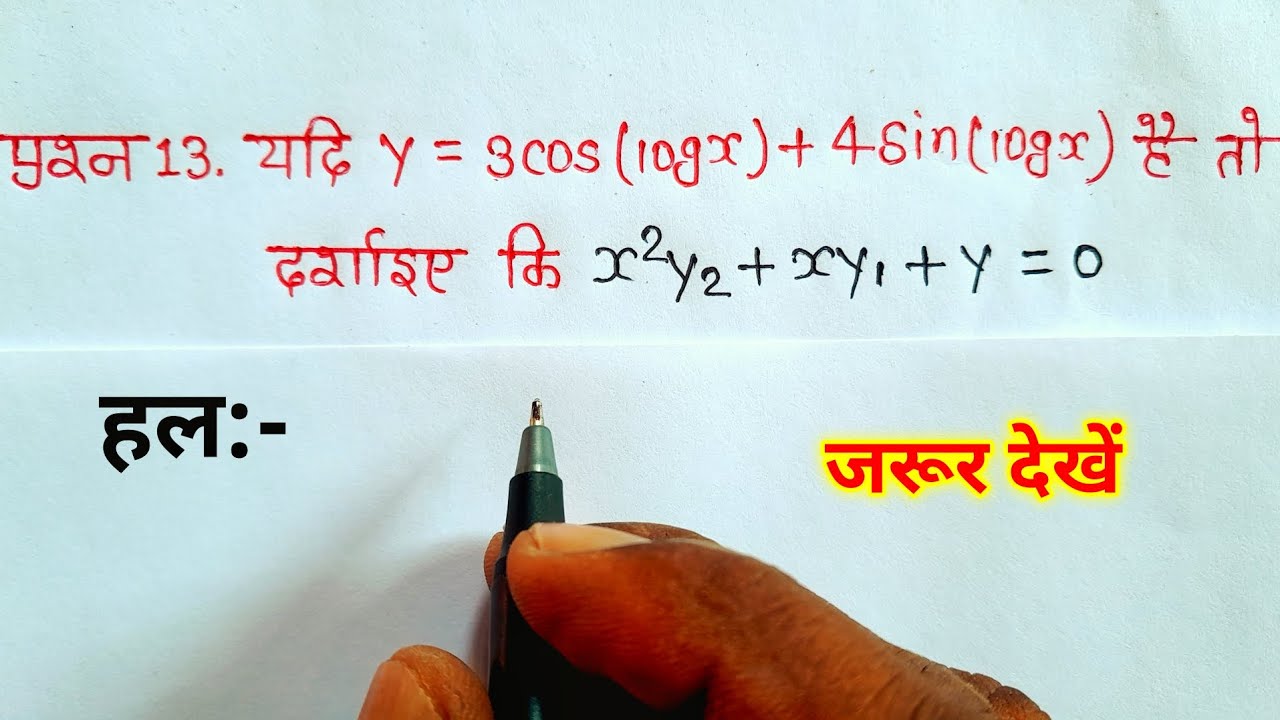 प्रश्न 13. यदि y = 3cos(logx) + 4Sin(logx) है तो
दर्शाइए कि x²y₂ + xy₁ + y = 0
हल:-
जरूर देखें